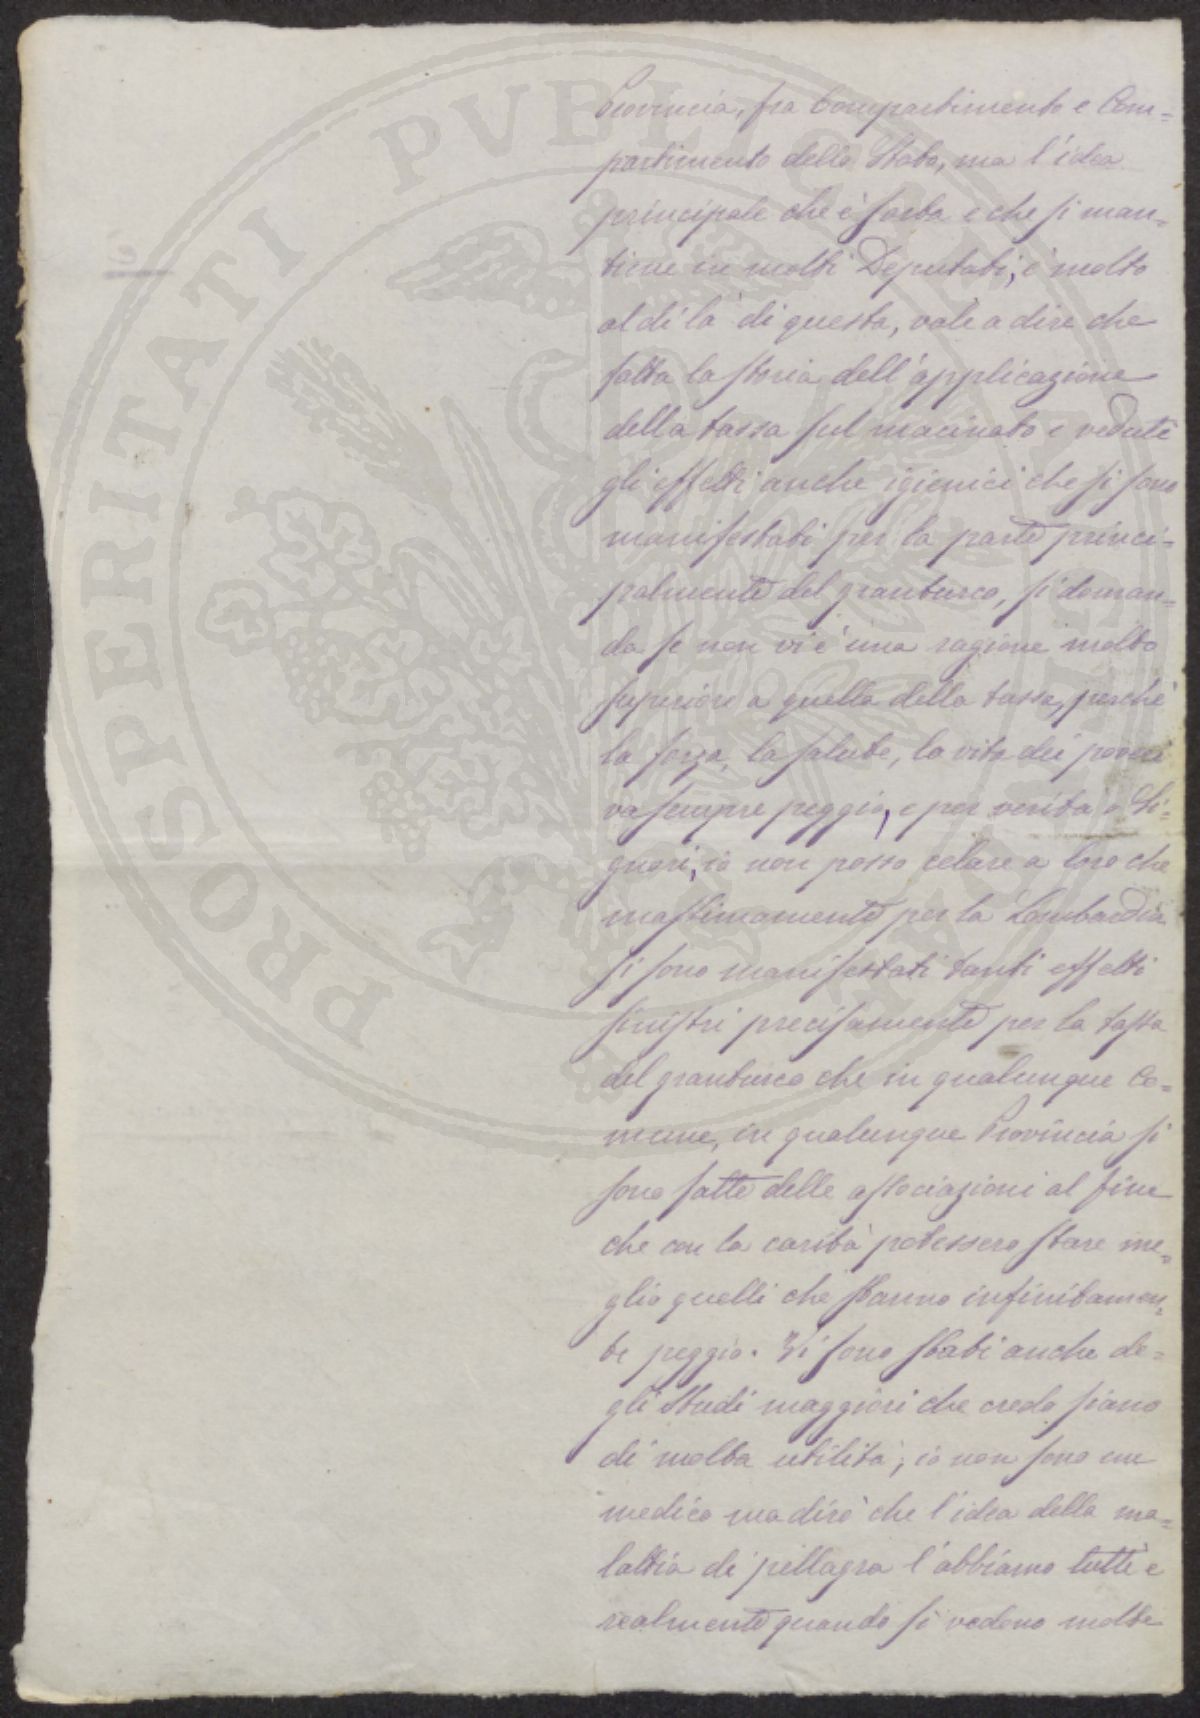 Provincia, fra Compartimento e Com=
partimento dello Stato, ma l'idea
principale che è sorta e che si man=
tiene in molti Deputati, è molto
al di là di questa, vale a dire che
fatta la storia dell'applicazione
della tassa sul macinato e vedute
gli effetti anche igienici che si sono
manifestati per la parte princi=
palmente del granturco, si doman=
da se non vi è una ragione molto
superiore a quella della tassa, perchè
la forza, la salute, la vita dei poveri
va sempre peggio, e per verità o Si=
gnori, io non posso celare a loro che
massimamente per la Lombardia
si sono manifestati tanti effetti
sinistri precisamente per la tassa
del granturco che in qualunque Co=
mune, in qualunque Provincia si
sono fatte delle associazioni al fine
che con la carità potessero stare me=
glio quelli che stanno infinitamen=
te peggio. Vi sono stati anche de=
gli studi maggiori che credo siano
di molta utilità; io non sono un
medico ma dirò che l'idea della ma=
lattia di pellagra l'abbiamo tutti e
realmente quando si vedono molte
PROSPERITATI PVBLICAE